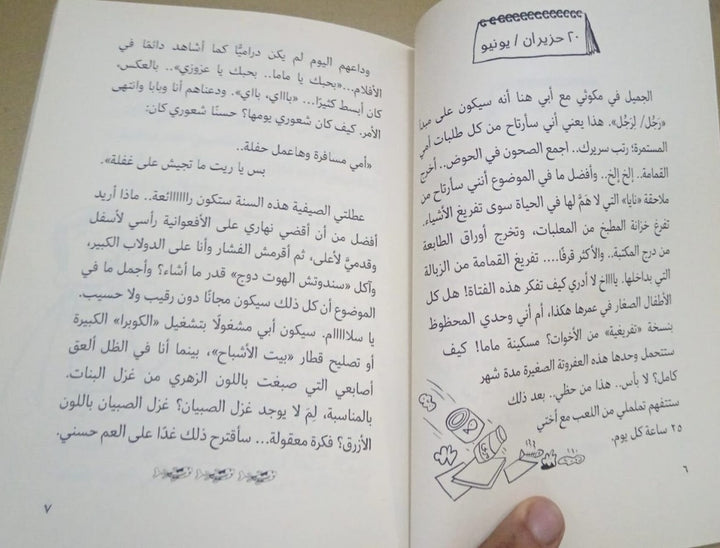 ٢٠ حزيران / يونيو
الجميل في مكوثي مع أبي هنا أنه سيكون على مبدأ
«رَجُل/ لِرَجُل». هذا يعني أني سأرتاح من كل طلبات أمي
المستمرة؛ رتب سريرك.. اجمع الصحون في الحوض.. أخرج
القمامة.. إلخ إلخ.. وأفضل ما في الموضوع أنني سأرتاح من
ملاحقة «نايا» التي لا هَمَّ لها في الحياة سوى تفريغ الأشياء.
تفرغ خزانة المطبخ من المعلبات، وتخرج أوراق الطابعة
من درج المكتبة.. والأكثر قرفًا.... تفريغ القمامة من الزبالة
التي بداخلها. يااااخ لا أدري كيف تفكر هذه الفتاة! هل كل
الأطفال الصغار في عمرها هكذا، أم أني وحدي المحظوظ
بنسخة «تفريغية» من الأخوات؟ مسكينة ماما! كيف
ستتحمل وحدها هذه العفروتة الصغيرة مدة شهر
كامل؟ لا بأس.. هذا من حظي.. بعد ذلك
ستتفهم تململي من اللعب مع أختي
٢٥ ساعة كل يوم.
٦
وداعهم اليوم لم يكن دراميًّا كما أشاهد دائمًا في
الأفلام...«بحبك يا ماما.. بحبك يا عزوزي».. بالعكس،
كان أبسط كثيرًا... «باااي، بااي». ودعناهم أنا وبابا وانتهى
الأمر. كيف كان شعوري يومها؟ حسنًا شعوري كان:
«أمي مسافرة وهاعمل حفلة..
بس يا ريت ما تجيش على غفلة».
عطلتي الصيفية هذه السنة ستكون راااااائعة.. ماذا أريد
أفضل من أن أقضي نهاري على الأفعوانية رأسي لأسفل
وقدميَّ لأعلى، ثم أقرمش الفشار وأنا على الدولاب الكبير،
وآكل «سندوتش الهوت دوج» قدر ما أشاء؟ وأجمل ما في
الموضوع أن كل ذلك سيكون مجانًا دون رقيب ولا حسيب.
يا سلااااام. سيكون أبي مشغولًا بتشغيل «الكوبرا» الكبيرة
أو تصليح قطار «بيت الأشباح»، بينما أنا في الظل ألعق
أصابعي التي صبغت باللون الزهري من غزل البنات.
بالمناسبة، لِمَ لا يوجد غزل الصبيان؟ غزل الصبيان باللون
الأزرق؟ فكرة معقولة... سأقترح ذلك غدًا على العم حسني.
٧